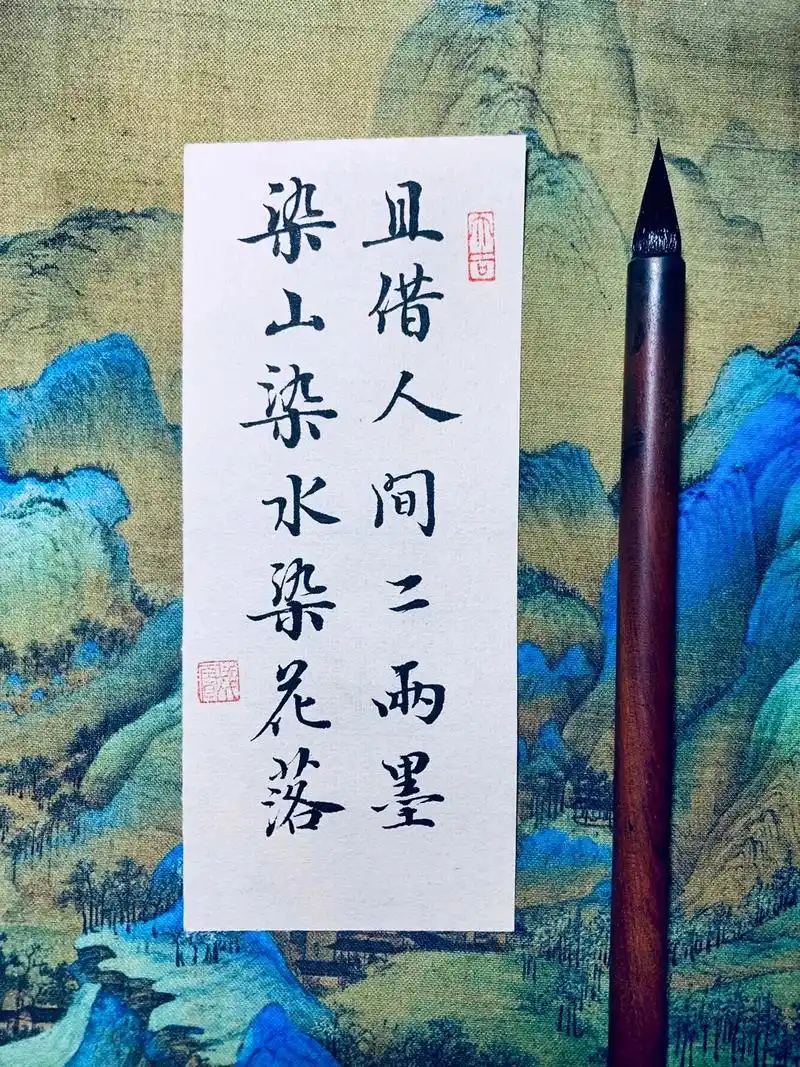 且借人间二兩墨
染山染水染花落